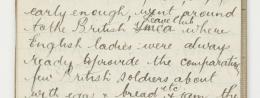 early enough, went around
to the British Leave Club Ymca where
English ladies were always
ready to provide the comparative
few British soldiers about
with eggs & bread etc & jam the